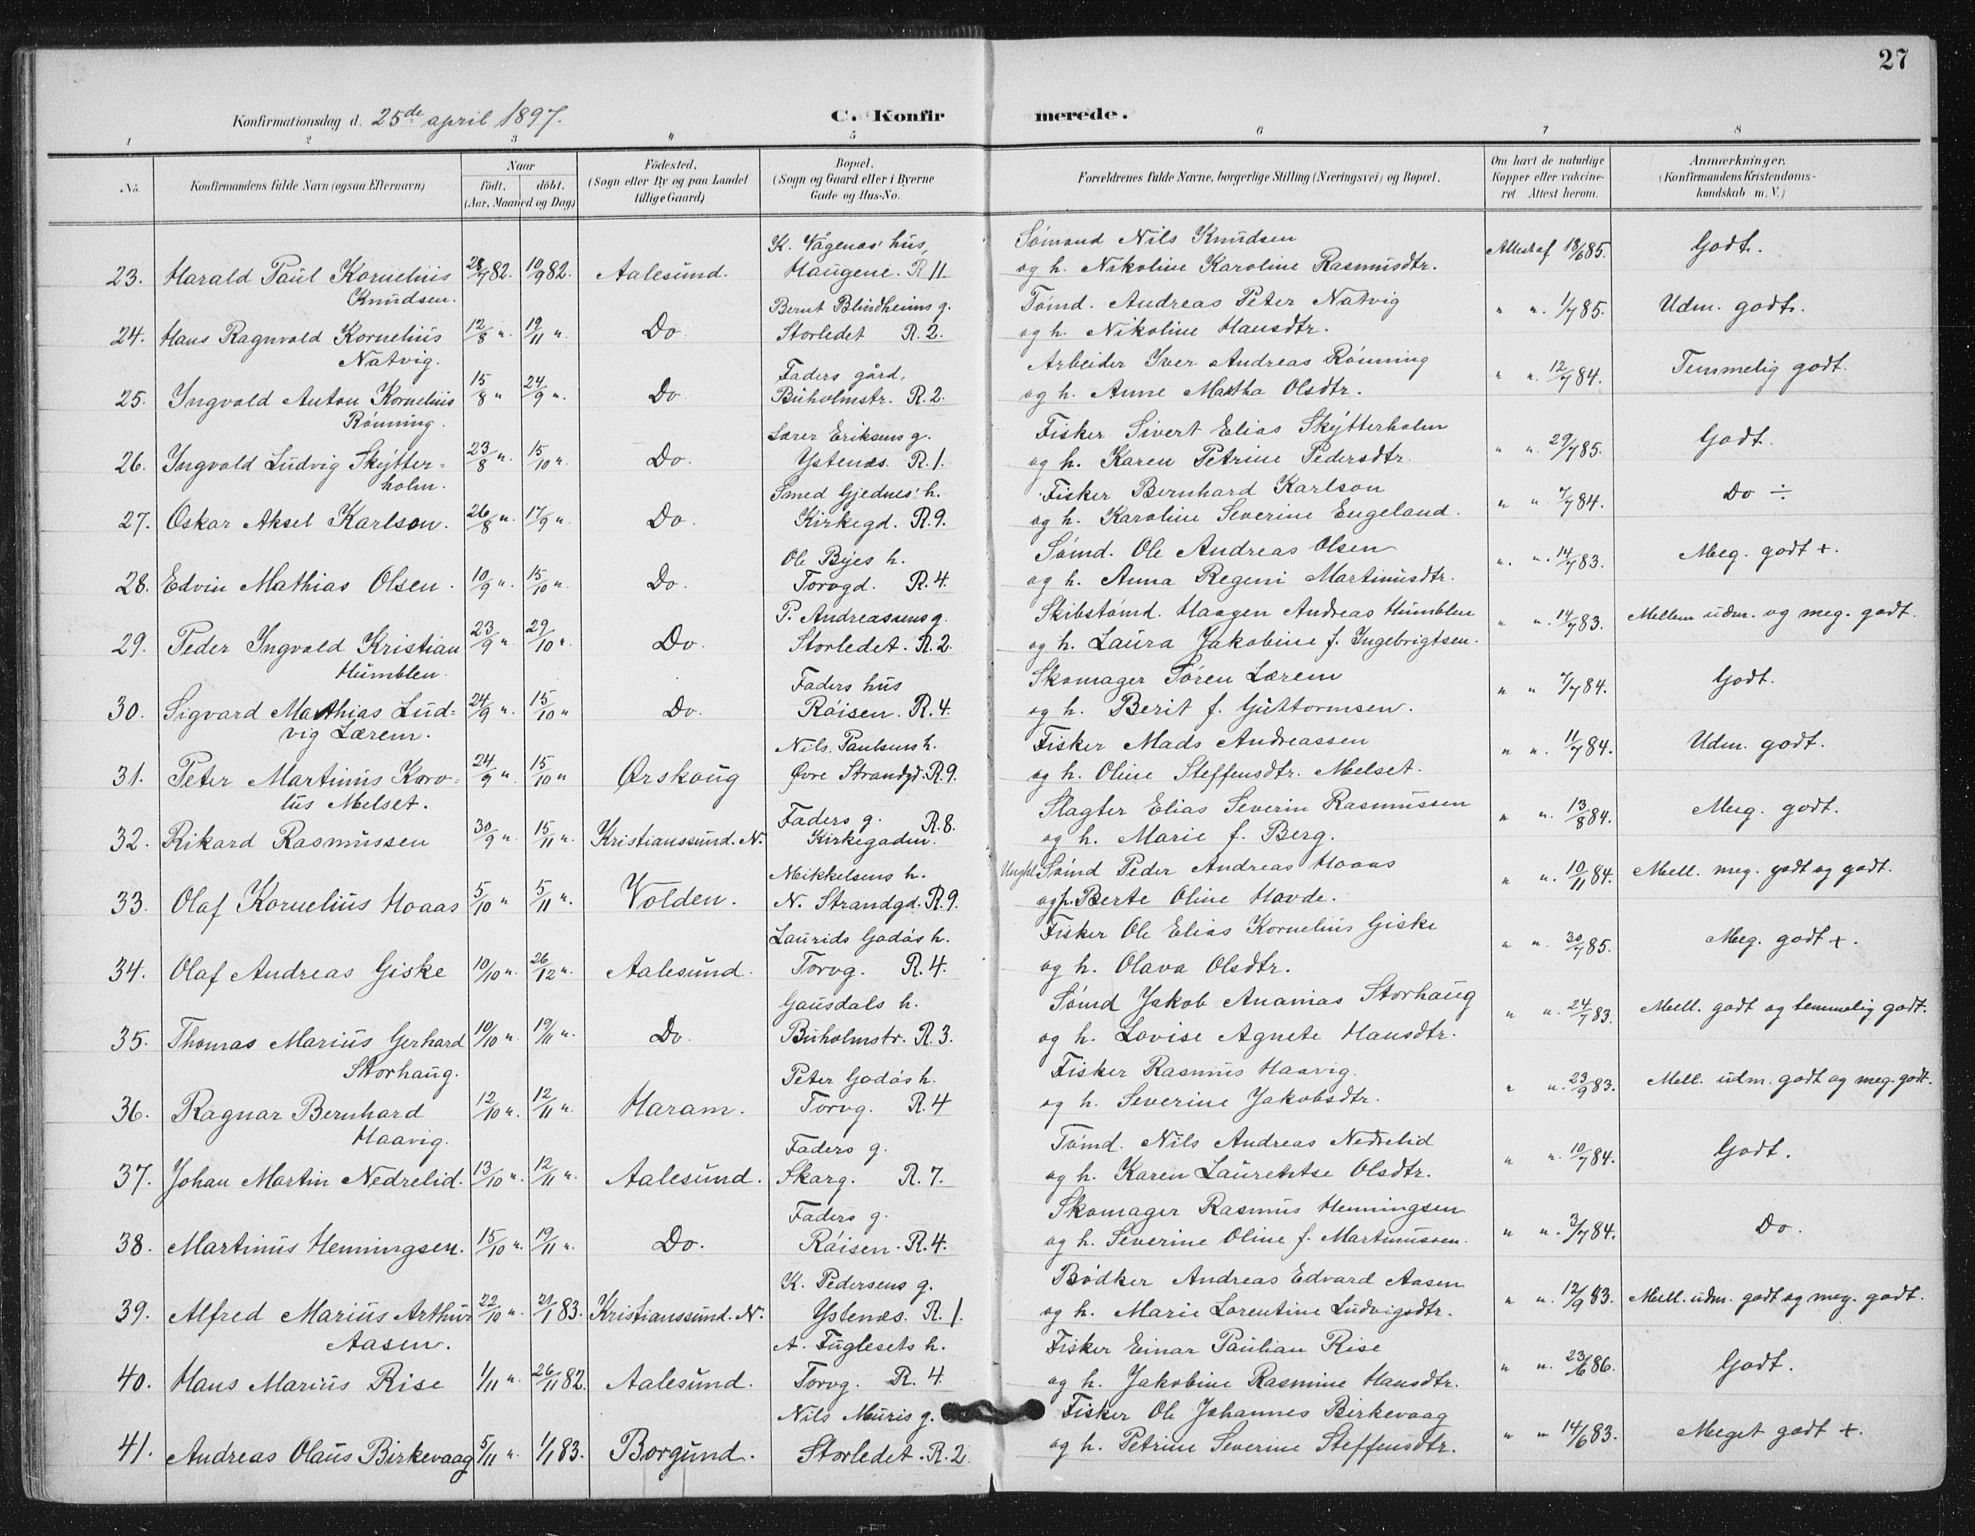 27
Konfirmationsdag d. 25de april 1897.
C. Konfir merede.
1 2 3 4 5 6 7 8
No. Konfirmandens fulde Navn (ogsaa Efternavn) Naar født, døbt. (Aar, Maaned og Dag) Fødested. (Sogn eller By og paa Landet tillige Gaard) Bopæl. (Sogn og Gaard eller i Byerne Gade og Hus-No. Forældrenes fulde Navne, borgerlige Stilling (Næringsvei) og Bopæl. Om havt de naturlige Kopper eller vakcineret Attest herom. Anmærkninger. (Konfirmandens Kristendomskundskab m. V.)
K. Vågenas' hus Sømand Nils Knudsen
23. Harald Paul Kornelius 28/7 82. 10/9 82. Aalesund. Haugene. R 11. og h. Nikoline Karoline Rasmusdtr. Attest af 18/6 85. Godt.
Knudsen.
Bernt Blindheims g. Tømd. Andreas Peter Natvig
24. Hans Ragnvald Kornelius 12/8 " 19/11 ". Do. Storledet R. 2. og h. Nikoline Hansdtr. " ". 1/7 85. Udm. godt.
Natvig.
Faders gård. Arbeider Iver Andreas Rønning
25. Yngvald Anton Kornelius 15/8 " 24/9 ". Do. Buholmstr. R. 2. og h. Anne Martha Olsdtr. " ". 12/7 84. Temmelig godt.
Rønning.
Lærer Eriksens g. Fisker Sivert Elias Skytterholm
26. Yngvald Ludvig Skytter- 23/8 ". 15/10 ". Do. Ystenæs. R. 1. og h. Karen Petrine Pedersdtr. " ". 29/7 85. Godt.
holm.
Smed Gjednes' h. Fisker Bernhard Karlson
27. Oskar Aksel Karlson. 26/8 ". 17/9 ". Do. Kirkegd. R. 9. og h. Karoline Severine Engeland. " " 7/7 84. Do ÷
Ole Byes h. Sømd. Ole Andreas Olsen
28. Edvin Mathias Olsen. 10/9 ". 15/10 ". Do. Torvgd. R. 4. og h. Anna Regeni Martinusdtr. ". ". 14/7 83. Meg. godt +.
P. Andreassens g. Skibstømd. Haagen Andreas Humblen
29. Peder Yngvald Kristian 23/9 " 29/10 ". Do. Storledet. R. 2. og h. Laura Jakobine f. Ingebrigtsen. " ". 14/7 83. Mellem udm. og meg. godt.
Humblen.
Faders hus Skomager Søren Lærem
30. Sigvard Mathias Lud- 24/9 ". 15/10 " Do. Røisen. R. 4. og h. Berit f. Guttormsen. " " 7/7 84. Godt.
vig Lærem.
Nils. Paulsens h. Fisker Mads Andreassen
31. Peter Martinus Koro- 24/9 " 15/10 " Ørskoug Øvre Strandgd. R. 9. og h. Oline Steffensdtr. Melset. " ". 11/7 84. Udm. godt.
lus Melset.
Faders g. R. 8. Slagter Elias Severin Rasmussen
32. Rikard Rasmussen 30/9 " 15/11 ". Kristianssund. N. Kirkegaden. og h. Marie f. Berg. " ". 13/8 84. Meg. godt.
Mikkelsens h. Ungkl Sømd Peder Andreas Hoaas
33. Olaf Kornelius Hoaas 5/10 " 5/11 ". Volden. N. Strandgd. R. 9. og p. Berte Oline Hovde. " ". 10/11 84. Mell. meg. godt og godt.
Laurids Godøs h. Fisker Ole Elias Kornelius Giske
34. Olaf Andreas Giske 10/10 ". 26/12 ". Aalesund. Torvg. R. 4. og h. Olava Olsdtr. " ". 30/7 85. Meg. godt +.
Gausdals h. Sømd Jakob Ananias Storhaug
35. Thomas Marius Gerhard 10/10 " 19/11 ". Do. Buholmstr. R. 3. og h. Lovise Agnete Hansdtr. " ". 24/7 83. Mell. godt og temmelig godt.
Storhaug.
Peter Godøs h. Fisker Rasmus Haavig.
36. Ragnar Bernhard 12/10 ". 12/11 ". Haram. Torvg. R. 4 og h. Severine Jakobsdtr. " ". 23/9 83. Mell. udm. godt og meg. godt.
Haavig.
Faders g. Tømd. Nils Andreas Nedrelid
37. Johan Martin Nedrelid. 13/10 ". 12/11 ". Aalesund. Skarg. R. 7. og h. Karen Lauretse Olsdtr. " ". 10/7 84. Godt.
Faders g. Skomager Rasmus Henningsen
38. Martinus Henningsen. 15/10 ". 19/11 ". Do. Røisen. R. 4. og h. Severine Oline f. Martinussen. " ". 3/7 84. Do.
K. Pedersens g. Bødker Andreas Edvard Aasen
39. Alfred Marius Arthur 22/10 ". 21/1 83. Kristianssund. N. Ystenæs. R. 1. og h. Marie Lorentine Ludvigsdtr. " ". 12/9 83. Mell. udm. godt og meg. godt.
Aasen.
A. Fuglesets h. Fisker Einar Paulian Rise
40. Hans Marius Rise 1/11 ". 26/11 82. Aalesund. Torvg. R. 4 og h. Jakobine Rasmine Hansdtr. " ". 23/6 86. Godt.
Nils Muris g. Fisker Ole Johannes Birkevaag
41. Andreas Olaus Birkevaag 5/11 " 1/1 83. Borgund. Storledet. R. 2. og h. Petrine Severine Steffensdtr. " " 14/6 83. Meget godt +.